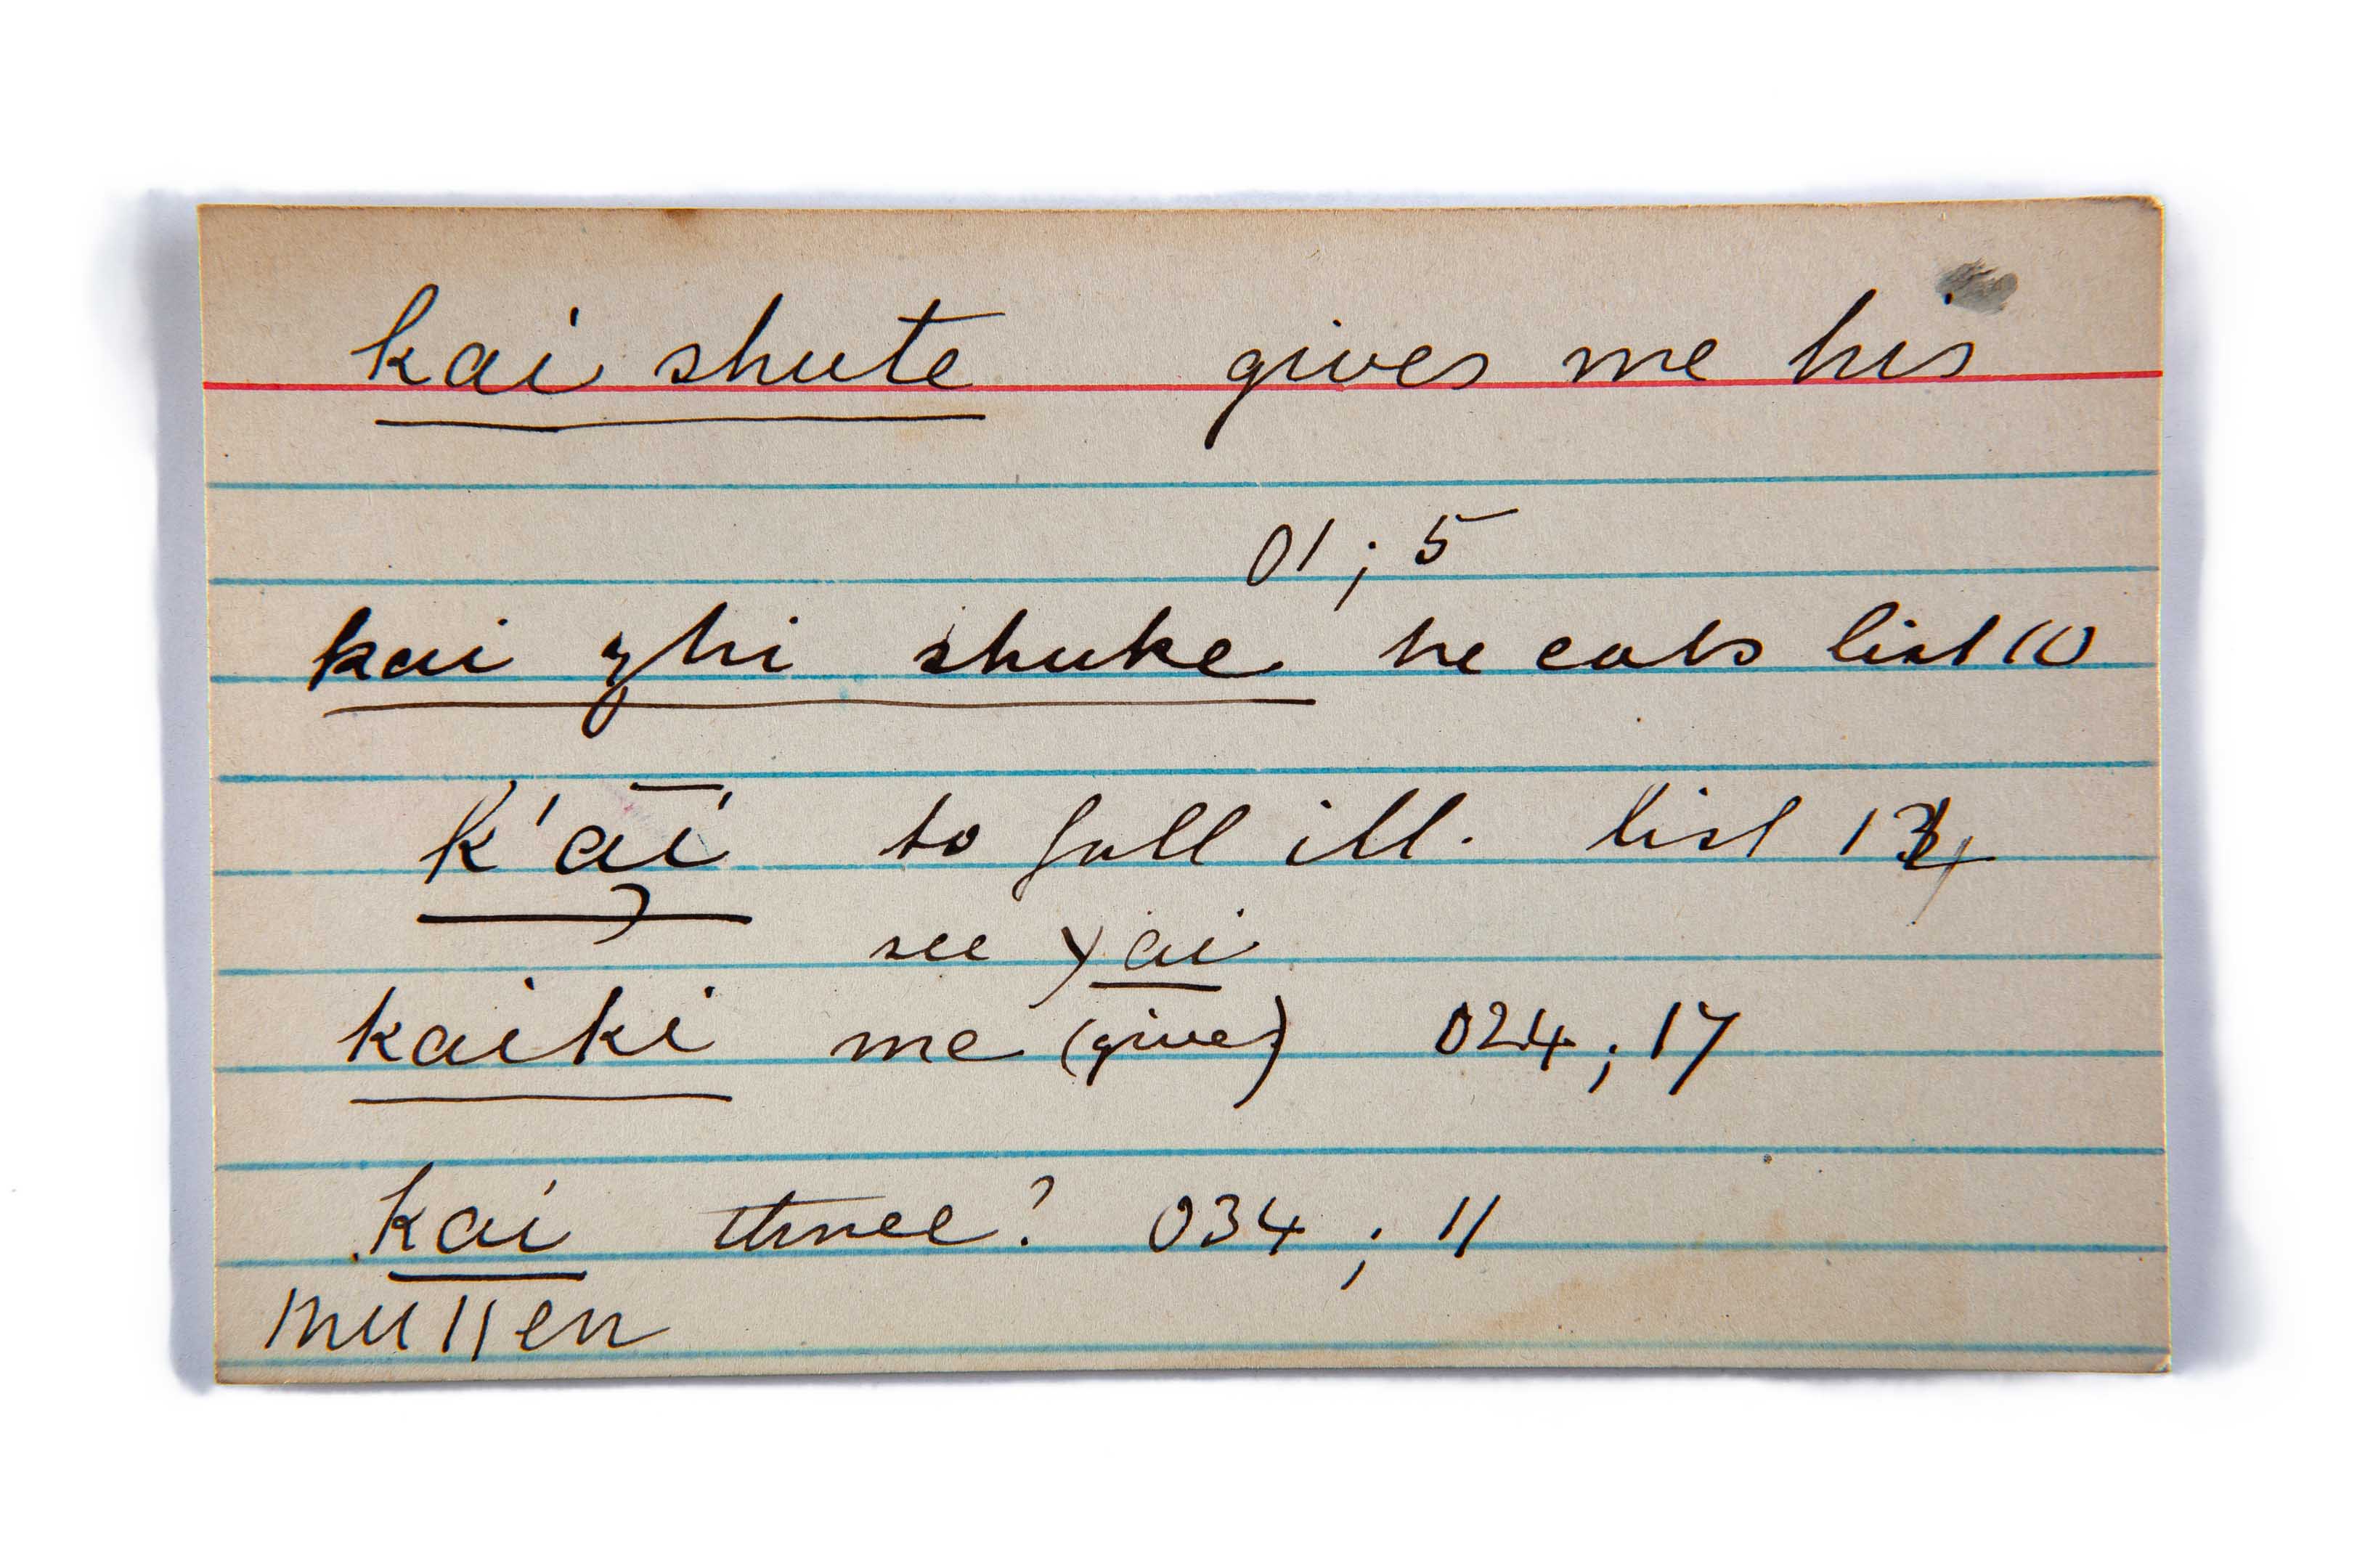 kai shute gives me his
01 ; 5
kai zhi shuke he eats list 10
k'āi to fall ill. list
see γai
kaiki me (give) 024 ; 17
kai three? 034 ; 11